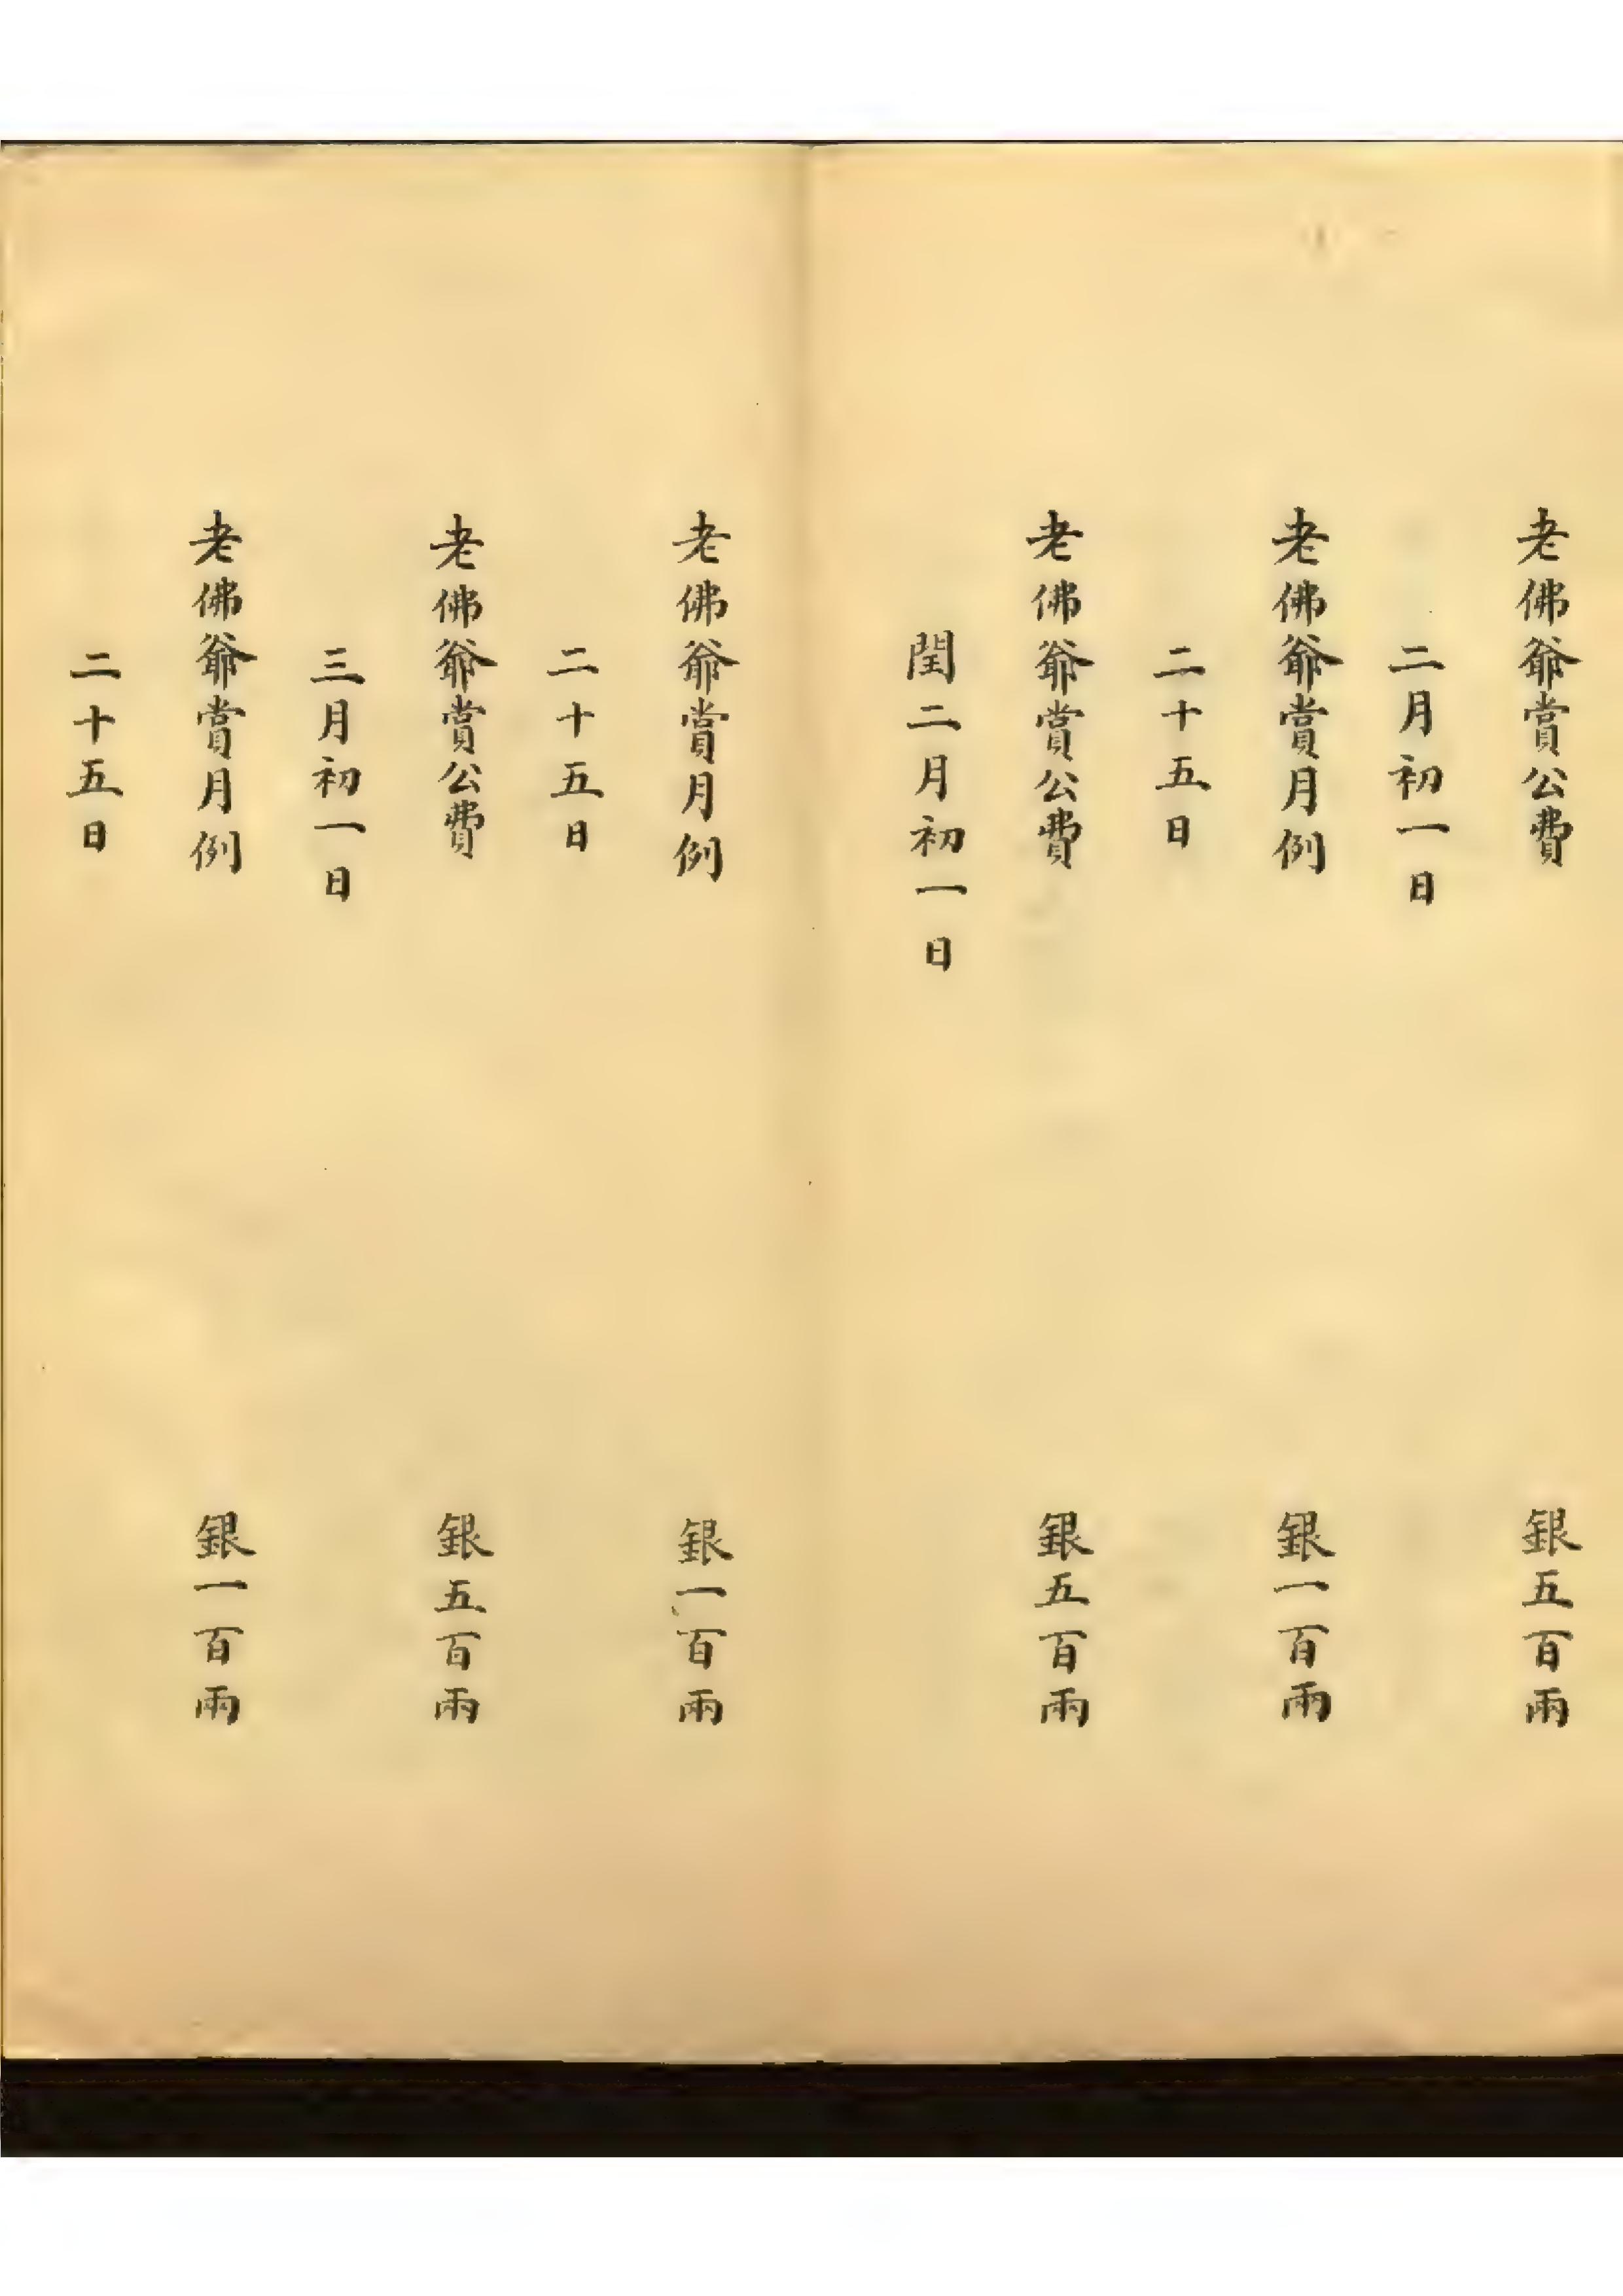 老佛爺賞公費 銀五百兩
二月初一日
老佛爺賞月例 銀一百兩
二十五日
老佛爺賞公費 銀五百兩
閏二月初一日
老佛爺賞月例 銀一百兩
二十五日
老佛爺賞公費 銀五百兩
三月初一日
老佛爺賞月例 銀一百兩
二十五日